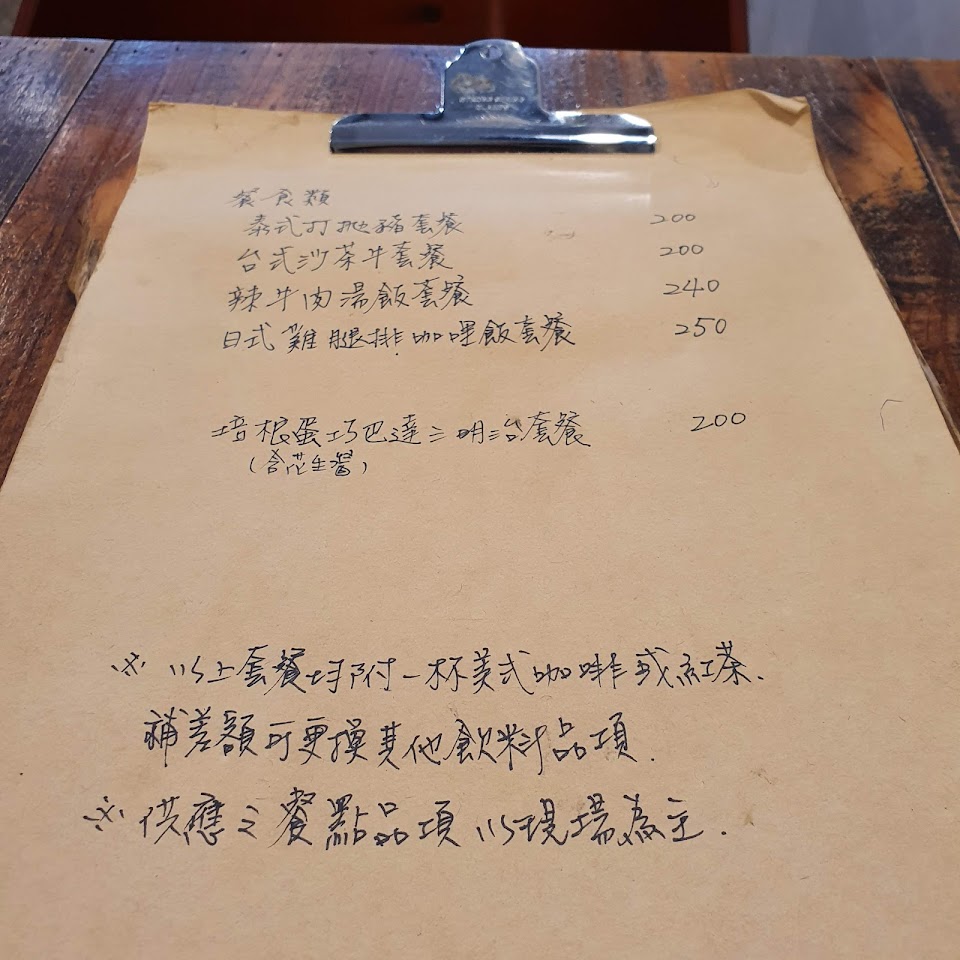 餐食類
泰式打拋豬套餐 200
台式沙茶牛套餐 200
辣牛肉湯飯套餐 240
日式雞腿排咖哩飯套餐 250
培根蛋巧巴達三明治套餐 200
(含花生醬)
※ 以上套餐均附一杯美式咖啡或紅茶.
補差額可更換其他飲料品項.
※ 供應之餐點品項以現場為主.